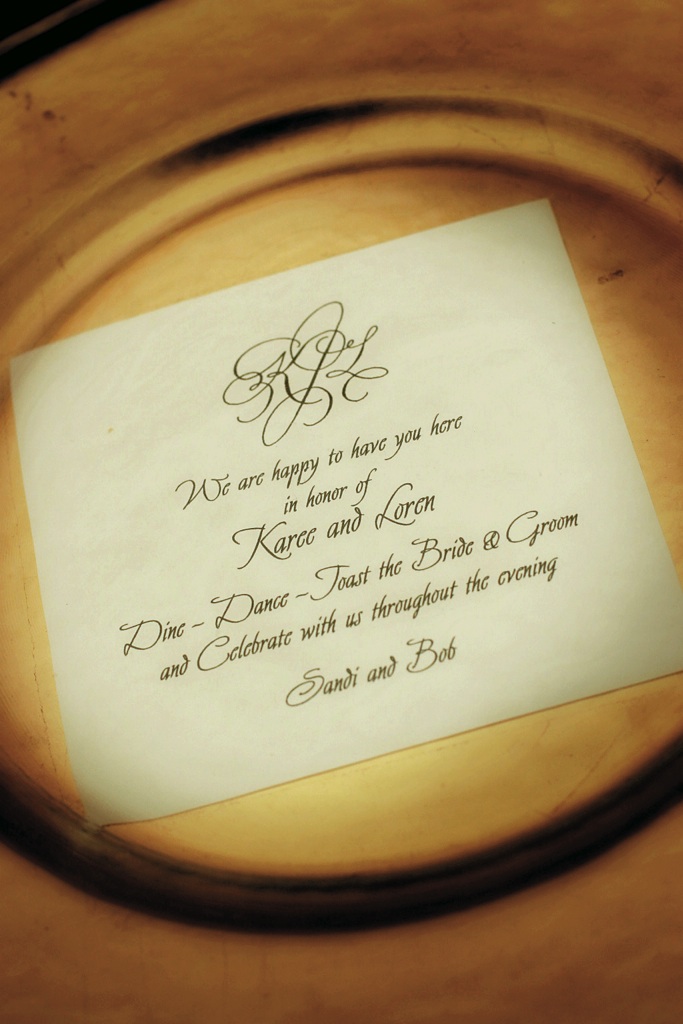 KJL
We are happy to have you here
in honor of
Karee and Loren
Dine ~ Dance ~ Toast the Bride & Groom
and Celebrate with us throughout the evening
Sandi and Bob